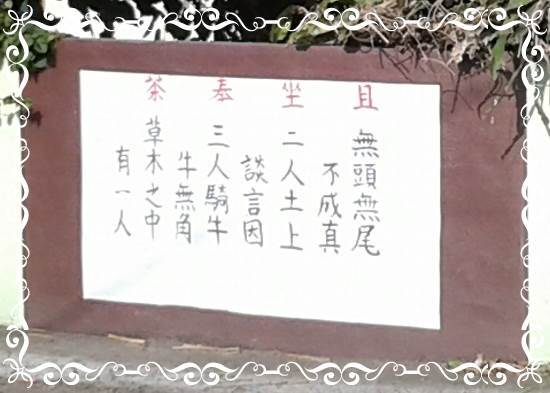 且無頭無尾
不成真
坐二人土上
談言因
奉三人騎牛
牛無角
茶草木之中
有一人